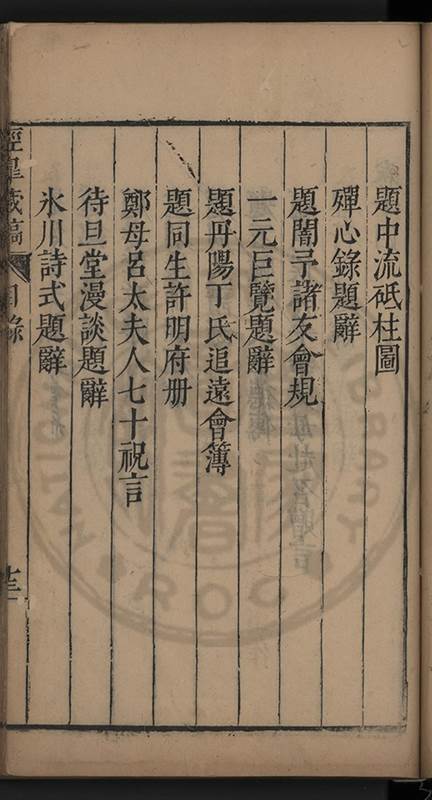 題中流砥柱圖
殫心錄題辭
題闇予諸友會規
一元巨覽題辭
題丹陽丁氏追遠會簿
題同生許明府册
鄭母呂太夫人七十祝言
待旦堂漫談題辭
氷川詩式題辭
涇臯藏稿 目錄